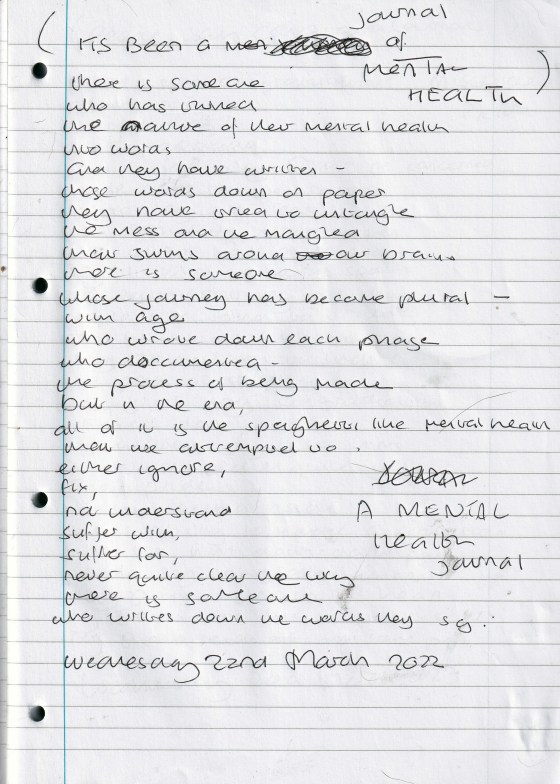 journal
( ITS BEEN A of
MENTAL
HEALTH )
there is someone
who has turned
the nature of their mental health
into words
and they have written -
those words down on paper
they have tried to untangle
the mess and the mangled
that swims around our brains
there is someone
whose journey has become plural -
with age
who wrote down each phase
who documented -
the process of being made
but in the end,
all of it is the spaghetti like mental health
that we attempted to.
either ignore,
fix,
not understand
suffer with,
suffer for,
never quite clear the way
there is someone
who writes down the words they say.
A MENTAL
Health
journal
wednesday 22nd March 2022